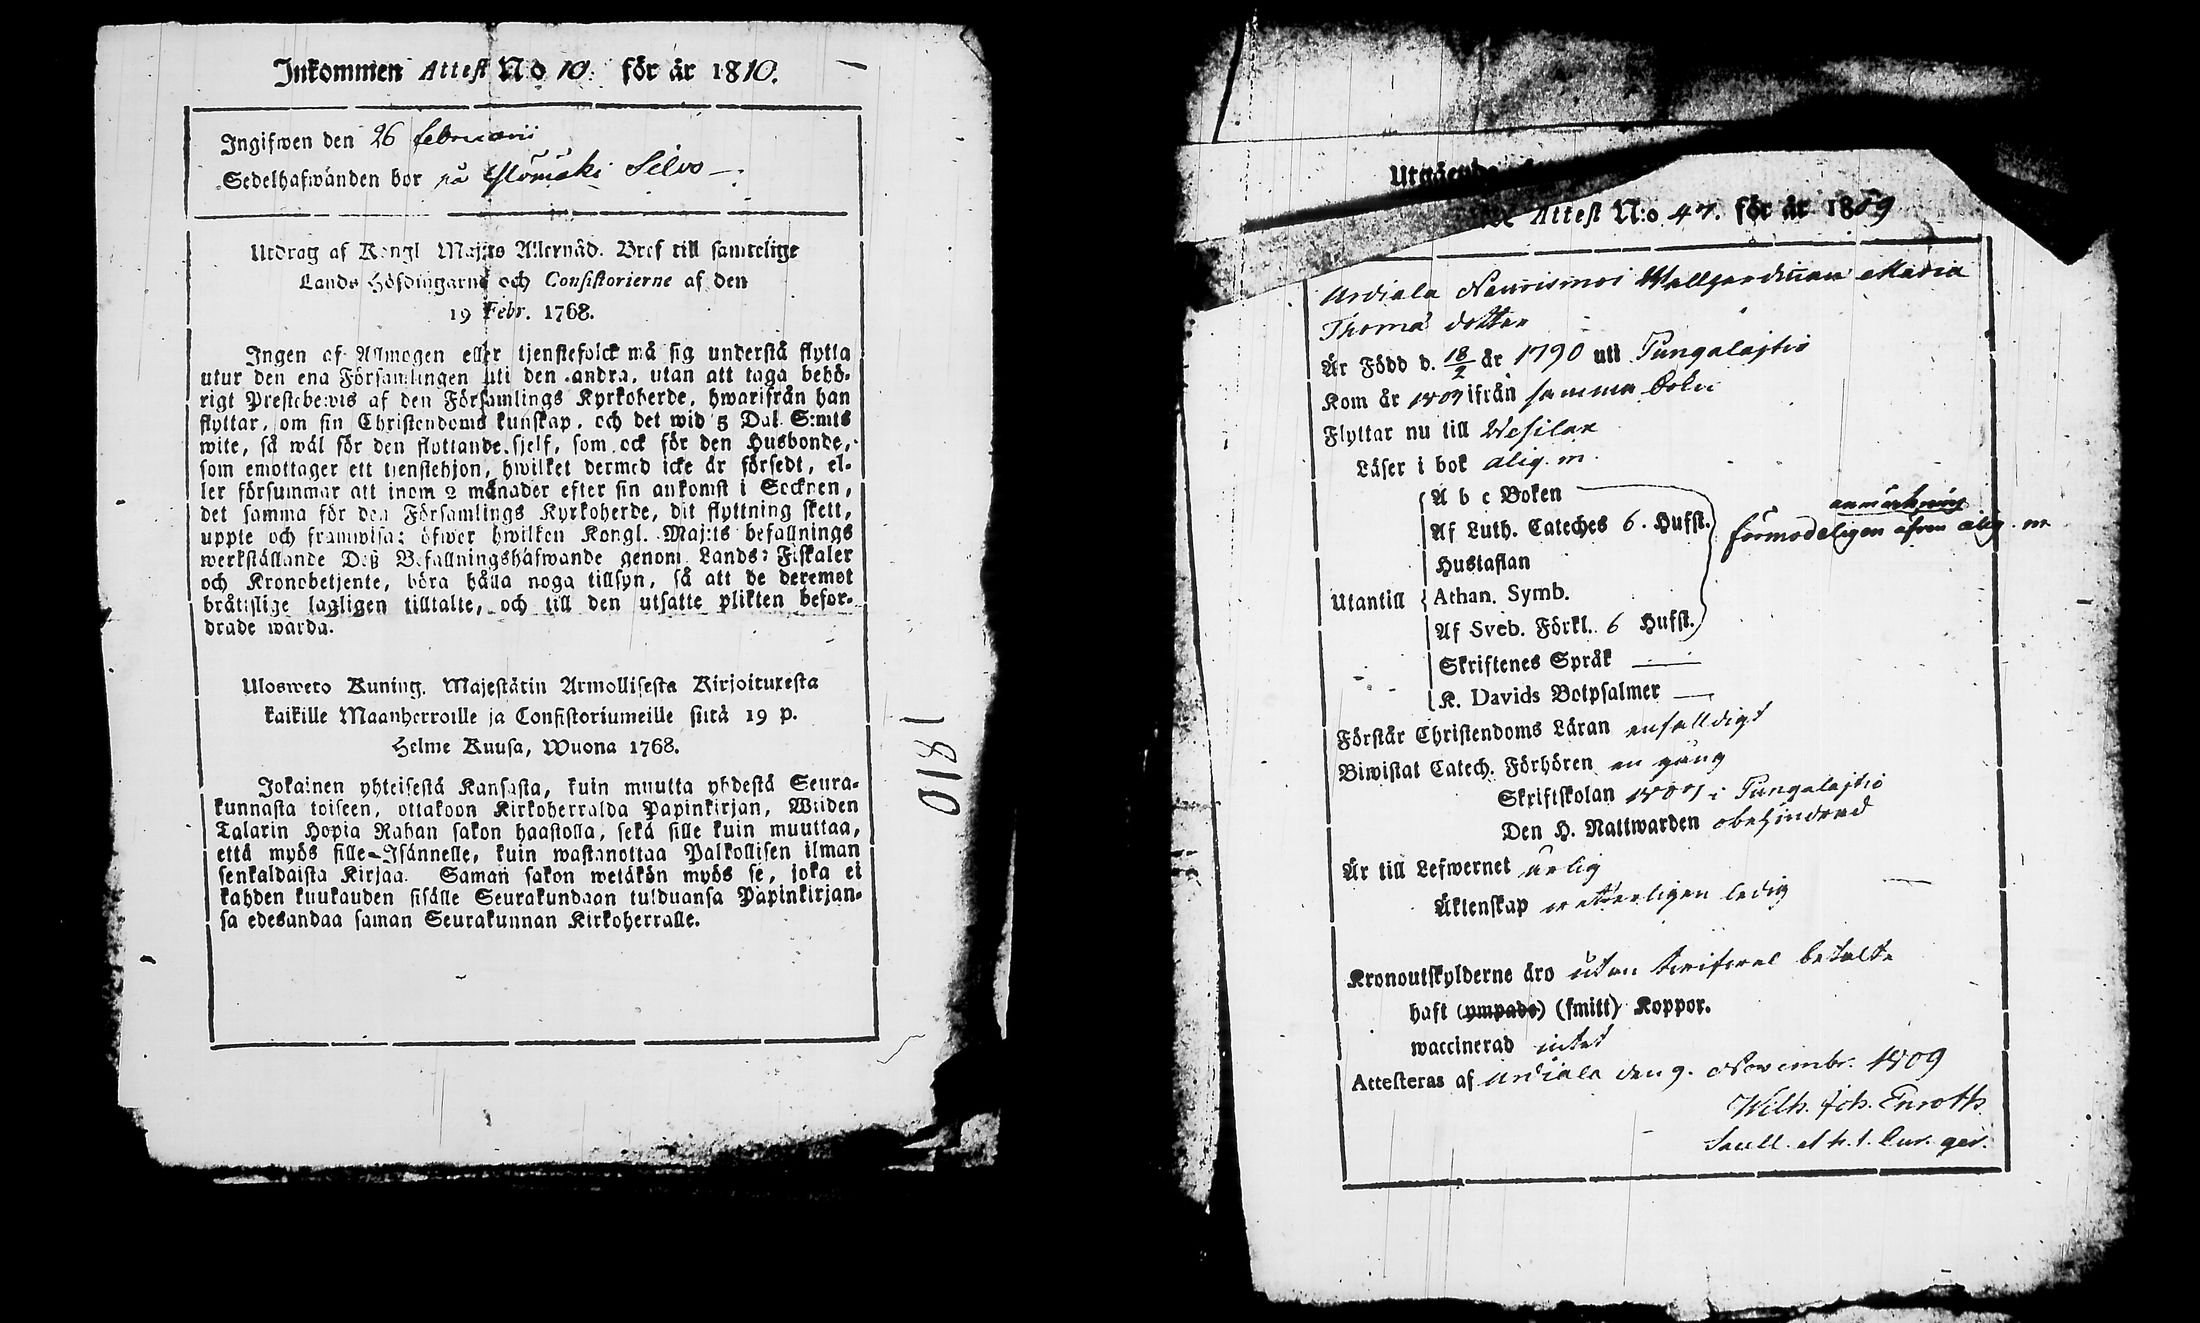 Inkommen Attest No 10. för år 1810.
Ingifwen den 26 februarii
Sedelhafwanden bor på Ylömäki Silvo
Utdrag af Kongl Maj:ts Allernåd. Bref till samtelige
Lands Höfdingarne och Consistorierne af den
19 Febr. 1768.
Ingen af Allmogen eller tjenstefolck må sig understå flytta
utur den ena Församlingen uti den andra, utan att taga behö-
rigt Prestebewis af den Församlings Kyrkoherde, hwarifrån han
flyttar, om sin Christendoms kunskap, och det wid 5 Dal. S:mts
wite, så wäl för den flyttande sjelf, som ock för den Husbonde,
som emottager ett tjenstehjon, hwilket dermed icke är försedt, el-
ler försummar att inom 2 månader efter sin ankomst i Socknen,
det samma för den Församlings Kyrkoherde, dit flyttning skett,
uppte och framwisa; öfwer hwilken Kongl. Maj:ts befallnings
werkställande Deß Befallningshafwande genom Lands-Fiskaler
och Kronobetjente, böra hålla noga tillsyn, så att de deremot
bråttslige lagligen tilltalte, och till den utsatte plikten befor-
drade warda.
Uloswero Kuning. Majestätin Armollisesta Kirjoituxesta
kaikille Maanherroille ja Consistoriumeille siitä 19 p.
Helme Kuusa, Wuona 1768.
Jokainen yhteisestä Kansasta, kuin muutta yhdestä Seura-
kunnasta toiseen, ottakoon Kirkoherralda Papinkirjan, Wiiden
Talarin Hopia Rahan sakon haastolla, sekä sille kuin muuttaa,
että myös sille Isännelle, kuin wastanottaa Palkollisen ilman
senkaldaista Kirjaa. Saman sakon wetäkön myös se, joka ei
kahden kuukauden sisälle Seurakundaan tulduansa Papinkirjan-
sa edesandaa saman Seurakunnan Kirkoherralle.
1810
Attest N:o 47. för år 1809
Urdiala Nauvismoi Maria
Thomä dotter
Är Född d. 18/2 år 1790 uti Pungalajtio
Kom år 1809 ifrån samma
Flyttar nu till Wesilax
Läser i bok alig. m.
Utantill
A b c Boken
Af Luth. Cateches 6. Hufst.
Hustaflan
Athan. Symb.
Af Sveb. Förkl. 6 Hufst.
Skriftenes Språk —
K. Davids Botpsalmer —
anmärkning
förmodeligen äfven alig. m
Förstår Christendoms Läran enfalldigt
Biwistat Catech. Förhören en gång
Skriftskolan 1807 i Pungalajtio
Den H. Nattwarden obehindrad
Är till Lefwernet ärlig
Äktenskap ledig
Kronoutskylderne äro utan twifwel betalte
haft (ympade) (smitt) Koppor.
waccinerad intet
Attesteras af Urdiala den 9. Novembr. 1809
Wilh. Joh. Enroth.
Sacell. et h. t. Cur. ger.